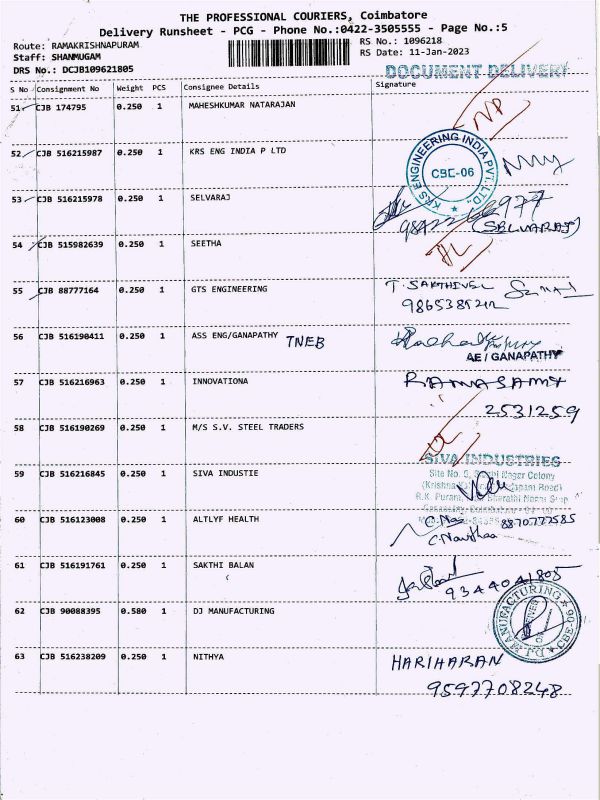 THE PROFESSIONAL COURIERS, Coimbatore
Delivery Runsheet - PCG - Phone No.:0422-3505555 - Page No.:5
Route: RAMAKRISHNAPURAM
Staff: SHANMUGAM
DRS No.: DCJB109621805
RS No.: 1096218
RS Date: 11-Jan-2023
DOCUMENT DELIVERY
S No Consignment No Weight PCS Consignee Details Signature
51 CJB 174795 0.250 1 MAHESHKUMAR NATARAJAN
NP
52 CJB 516215987 0.250 1 KRS ENG INDIA P LTD
KRS ENGINEERING INDIA PVT. LTD.
CBE-06
53 CJB 516215978 0.250 1 SELVARAJ
(SELVARAJ)
54 CJB 515982639 0.250 1 SEETHA
55 CJB 88777164 0.250 1 GTS ENGINEERING
T. SAKTHIVEL
56 CJB 516190411 0.250 1 ASS ENG/GANAPATHY TNEB
AE / GANAPATHY
57 CJB 516216963 0.250 1 INNOVATIONA
RAMASAMY
2531259
58 CJB 516190269 0.250 1 M/S S.V. STEEL TRADERS
59 CJB 516216845 0.250 1 SIVA INDUSTIE
SIVA INDUSTRIES
60 CJB 516123008 0.250 1 ALTLYF HEALTH
8870777585
61 CJB 516191761 0.250 1 SAKTHI BALAN
9344041805
62 CJB 90088395 0.580 1 DJ MANUFACTURING
D.J. MANUFACTURING
CBE-06
63 CJB 516238209 0.250 1 NITHYA
HARIHARAN
9597708248